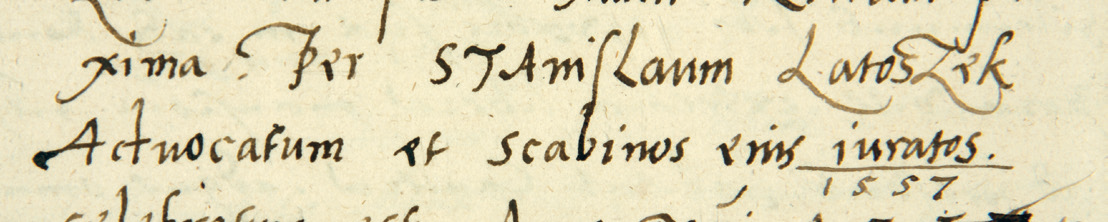 xima? Per STAnislaum Latoszek
Advocatum et scabinos eius iuratos.
1557